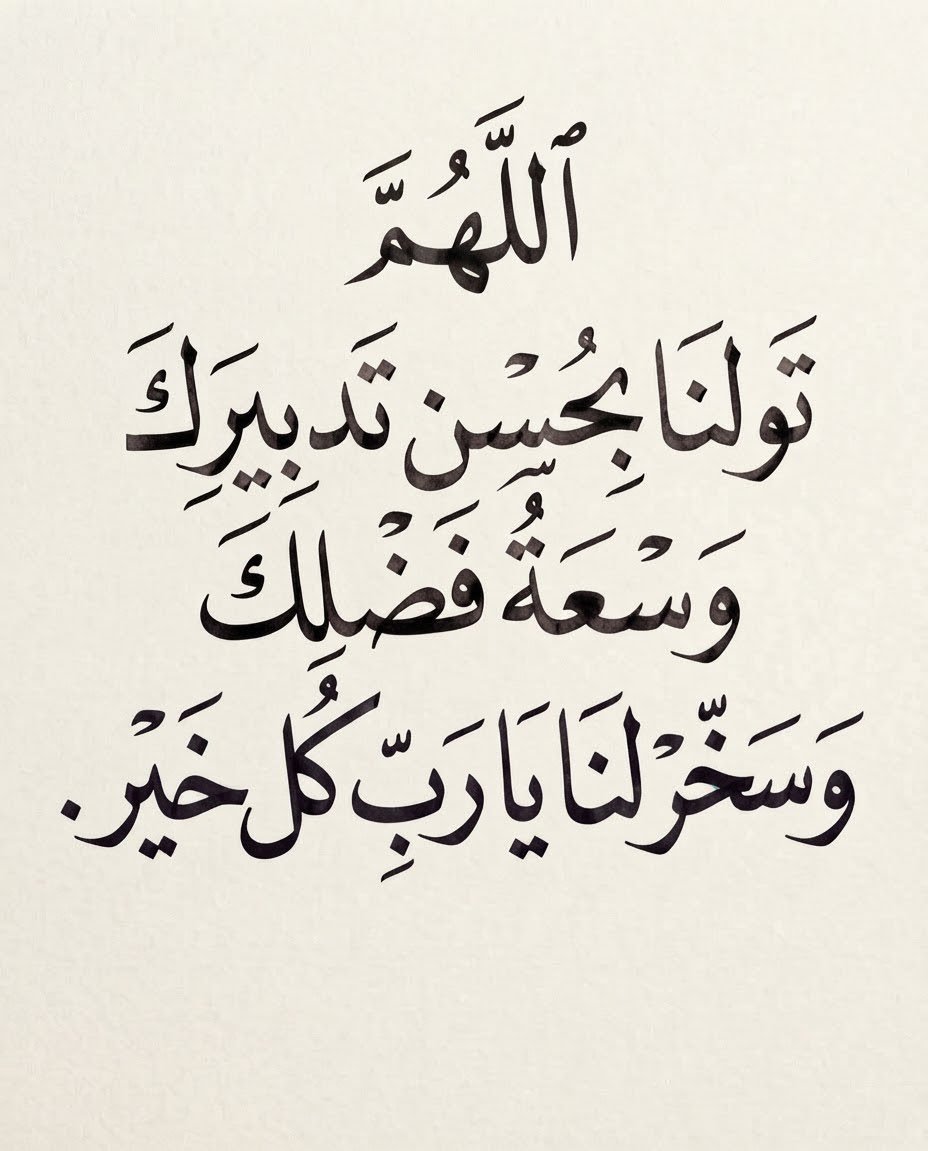 ٱللَّهُمَّ
تَولنَا بِحُسْن تَدبِيرِكَ
وَسْعَةُ فَضْلِكَ
وَسَخّرْ لنَا يَا رَبِّ كُل خَيْر.